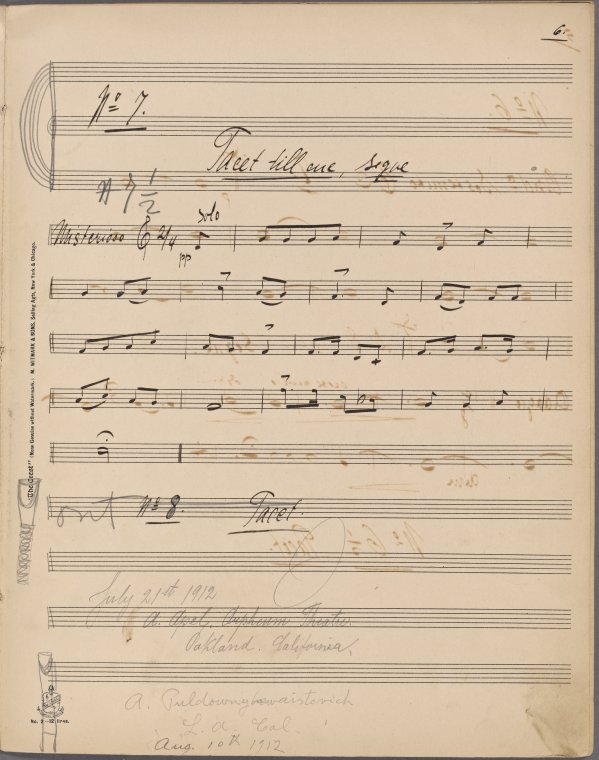 6.
Nº 7.
Tacet till cue, segue
Nº 7 1/2
Solo
Misterioso 2/4
pp
Nº 8. Tacet.
July 21st 1912
A. Apel. Orpheum Theatre.
Oakland. California.
A.
L. A. Cal.
Aug. 10th 1912
"The Crest" (None Genuine without Watermark.) M. WITMARK & SONS, Selling Agts, New York & Chicago.
No. 2-12 lines.